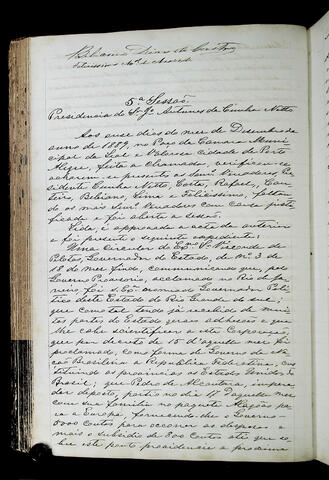 5ª Sessão.
Presidencia do Sr. Jº Antunes da Cunha Netto
Aos onse dias do mez de Desembro do
anno de 1889, no Paço da Camara Muni-
cipal da Leal e Valerosa Cidade de Porto
Alegre, feita a Chamada, verificou-se
acharem-se presentes os senrs. Vereadores, Pre-
sidente Cunha Netto, Costa, Rafael, Can-
teiro, Bibiano, Lima e Felicissimo, faltan-
do os mais senrs. Vereadores com causa justi-
ficada e foi aberta a sessão.
Lida, é approvada a acta da anterior
e foi presente o seguinte expediente:
Uma Circular do Exmo. Sr. Visconde de
Pelotas, Governador do Estado, de nº 3 de
18 do mez findo, communicando que, pelo
Governo Provisorio, acclamado no Rio de Ja-
neiro, foi S. Exª nomeado Governador Poli-
tico deste Estado do Rio Grande do Sul;
que como tal tendo já recebido de mui-
tas partes do Estado geral adhesão e que
lhe cabe scientificar a esta Corporação,
que por decreto de 15 d'aquelle mez foi
proclamada, como forma de Governo da na-
ção Brasileira a Republica Federativa, cons-
tituindo as provincias os Estados Unidos do
Brasil; que Pedro de Alcantara, impera-
dor deposto, partio no dia 17 d'aquelle mez
com sua familia no paquete Alagôas pa-
ra a Europa, fornecendo-lhe o Governo
5000 Contos para occorrer as despezas e
mais o subsidio de 800 Contos até que so-
bre este ponto providencie a proxima